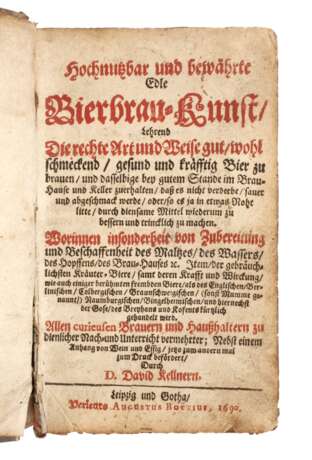 Hochnutzbar und bewährte
Edle
Bierbrau-Kunst/
Lehrend
Die rechte Art und Weise gut/wohl
schmeckend/ gesund und kräfftig Bier zu
brauen/ und dasselbige bey gutem Stande im Brau-
Hause und Keller zuerhalten/ daß es nicht verderbe/ sauer
und abgeschmack werde/ oder/ so es ja in etwas Noht
litte/ durch diensame Mittel wiederum zu
bessern und trincklich zu machen.
Worinnen insonderheit von Zubereitung
und Beschaffenheit des Maltzes/ des Wassers/
des Hopffens/ des Brau-Hauses ꝛc. Item/ der gebräuch-
lichsten Kräuter-Biere/ samt deren Krafft und Würckung/
wie auch einiger berühmten frembden Biere/ als des Englischen/
Colbergischen/ Braunschwgischen/ (sonst Mumme ge-
nannt/) Naumburgischen/ und hiernechst
der Gose/ des Breyhans und Kofents kürtzlich
gehandelt wird.
Allen curieusen Brauern und Haußhaltern zu
dienlicher Nachund Unterricht vermehrter; Nebst einem
Anhang von Wein und Essig/ jetzo zum andern mal
zum Druck befördert/
Durch
D. David Kellnern.
Leipzig und Gotha/
Verlegts AUGUSTUS BOETIUS, 1690.